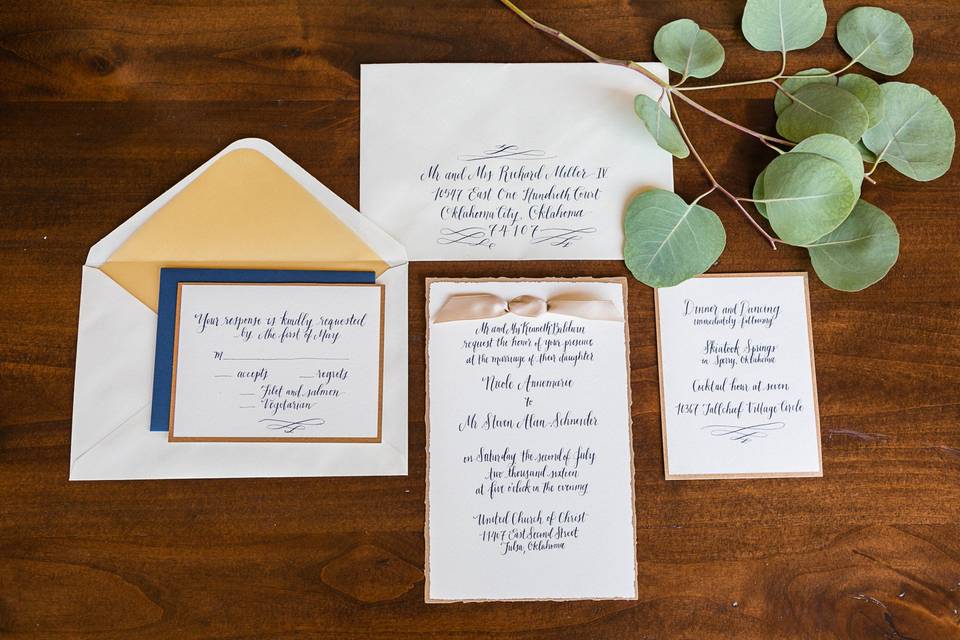 Mr and Mrs Richard Miller IV
10947 East One Hundreth Court
Oklahoma City, Oklahoma
74107
Your response is kindly requested
by the first of May
M
accepts regrets
Filet and salmon
Vegetarian
Mr and Mrs Kenneth
request the honor of your presence
at the marriage of their daughter
Nicole Annemarie
to
Mr Steven Alan Schneider
on Saturday the second of July
two thousand sixteen
at five o'clock in the evening
United Church of Christ
11407 East Second Street
Tulsa, Oklahoma
Dinner and Dancing
immediately following
Springs
in Sperry, Oklahoma
Cocktail hour at seven
10367 Tallchief Village Circle